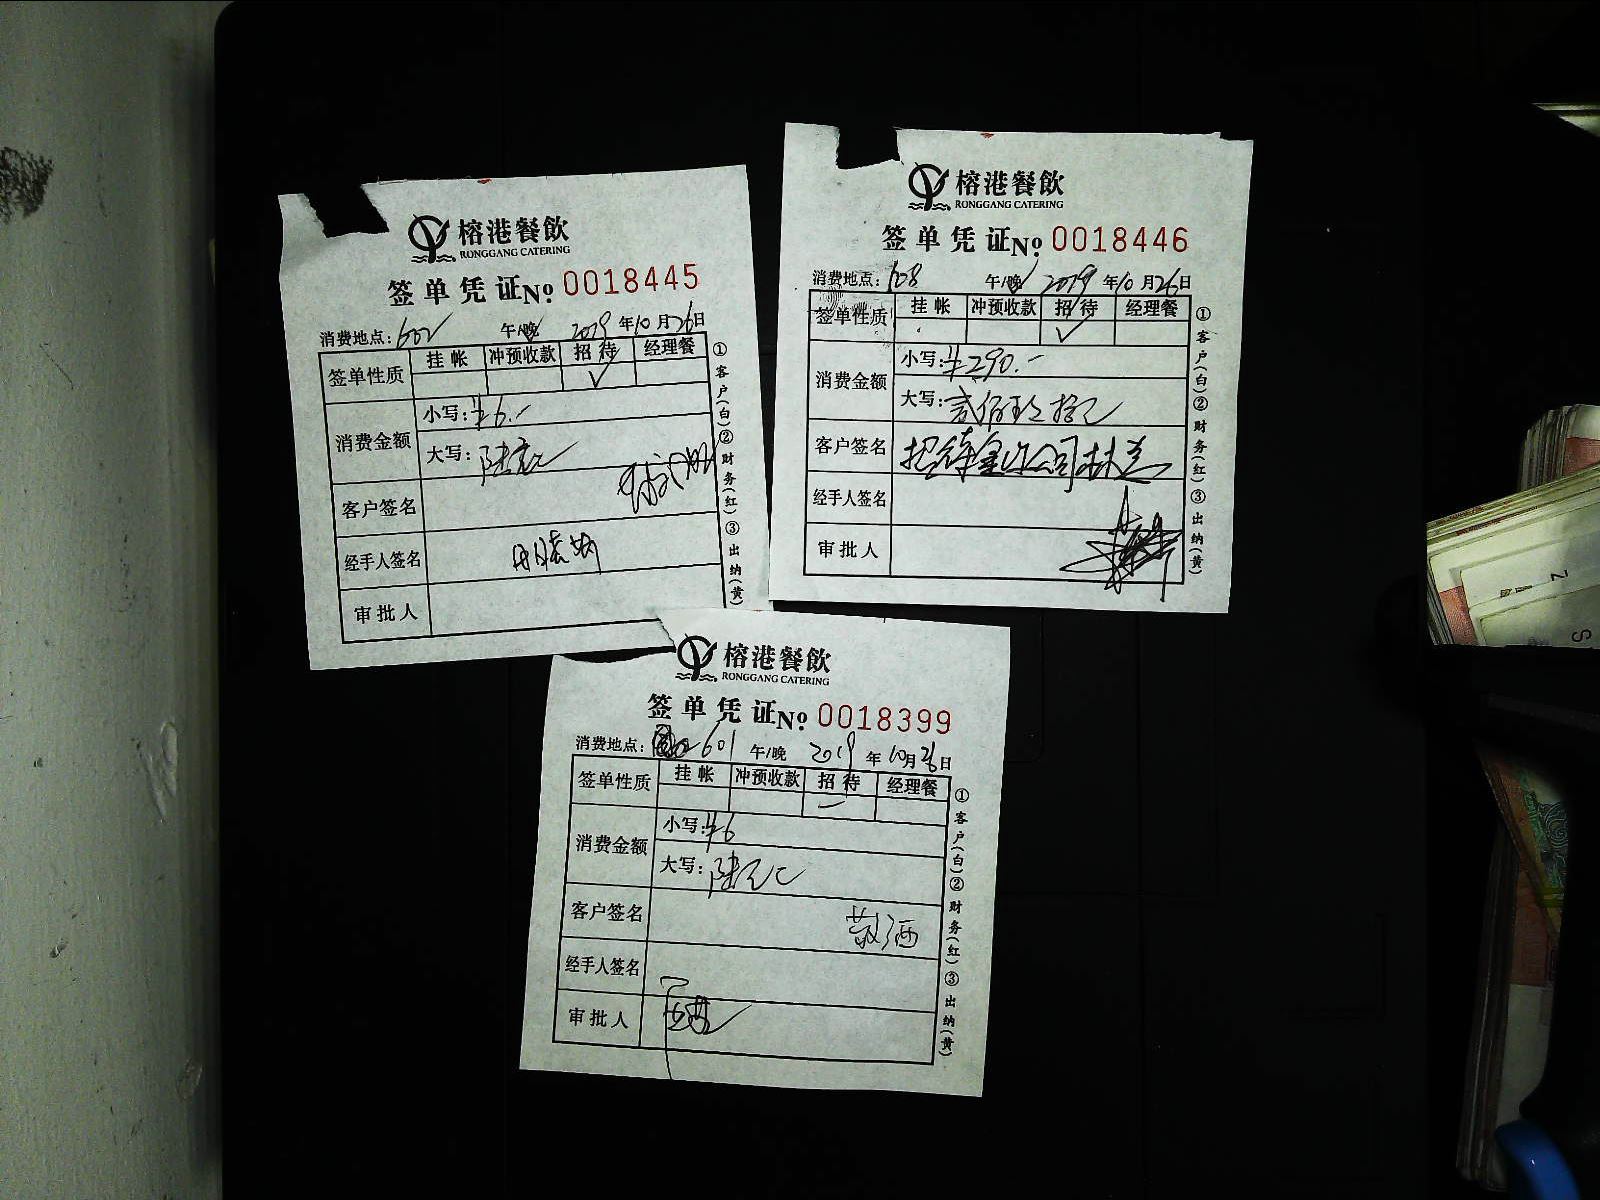 榕港餐飲
RONGGANG CATERING
签单凭证 No. 0018445
消费地点: 602 午/晚 2019年10月26日
签单性质 挂帐 冲预收款 招待 经理餐
✓
消费金额 小写: ¥6.-
大写: 陆元
客户签名
经手人签名
审批人
①客户(白)②财务(红)③出纳(黄)
榕港餐飲
RONGGANG CATERING
签单凭证 No. 0018446
消费地点: 608 午/晚 2019年10月26日
签单性质 挂帐 冲预收款 招待 经理餐
✓
消费金额 小写: ¥290.-
大写: 贰佰玖拾元
客户签名 招待 公司林总
经手人签名
审批人
①客户(白)②财务(红)③出纳(黄)
榕港餐飲
RONGGANG CATERING
签单凭证 No. 0018399
消费地点: 601 午/晚 2019年10月26日
签单性质 挂帐 冲预收款 招待 经理餐
消费金额 小写: ¥6
大写: 陆元
客户签名 敬酒
经手人签名
审批人
①客户(白)②财务(红)③出纳(黄)